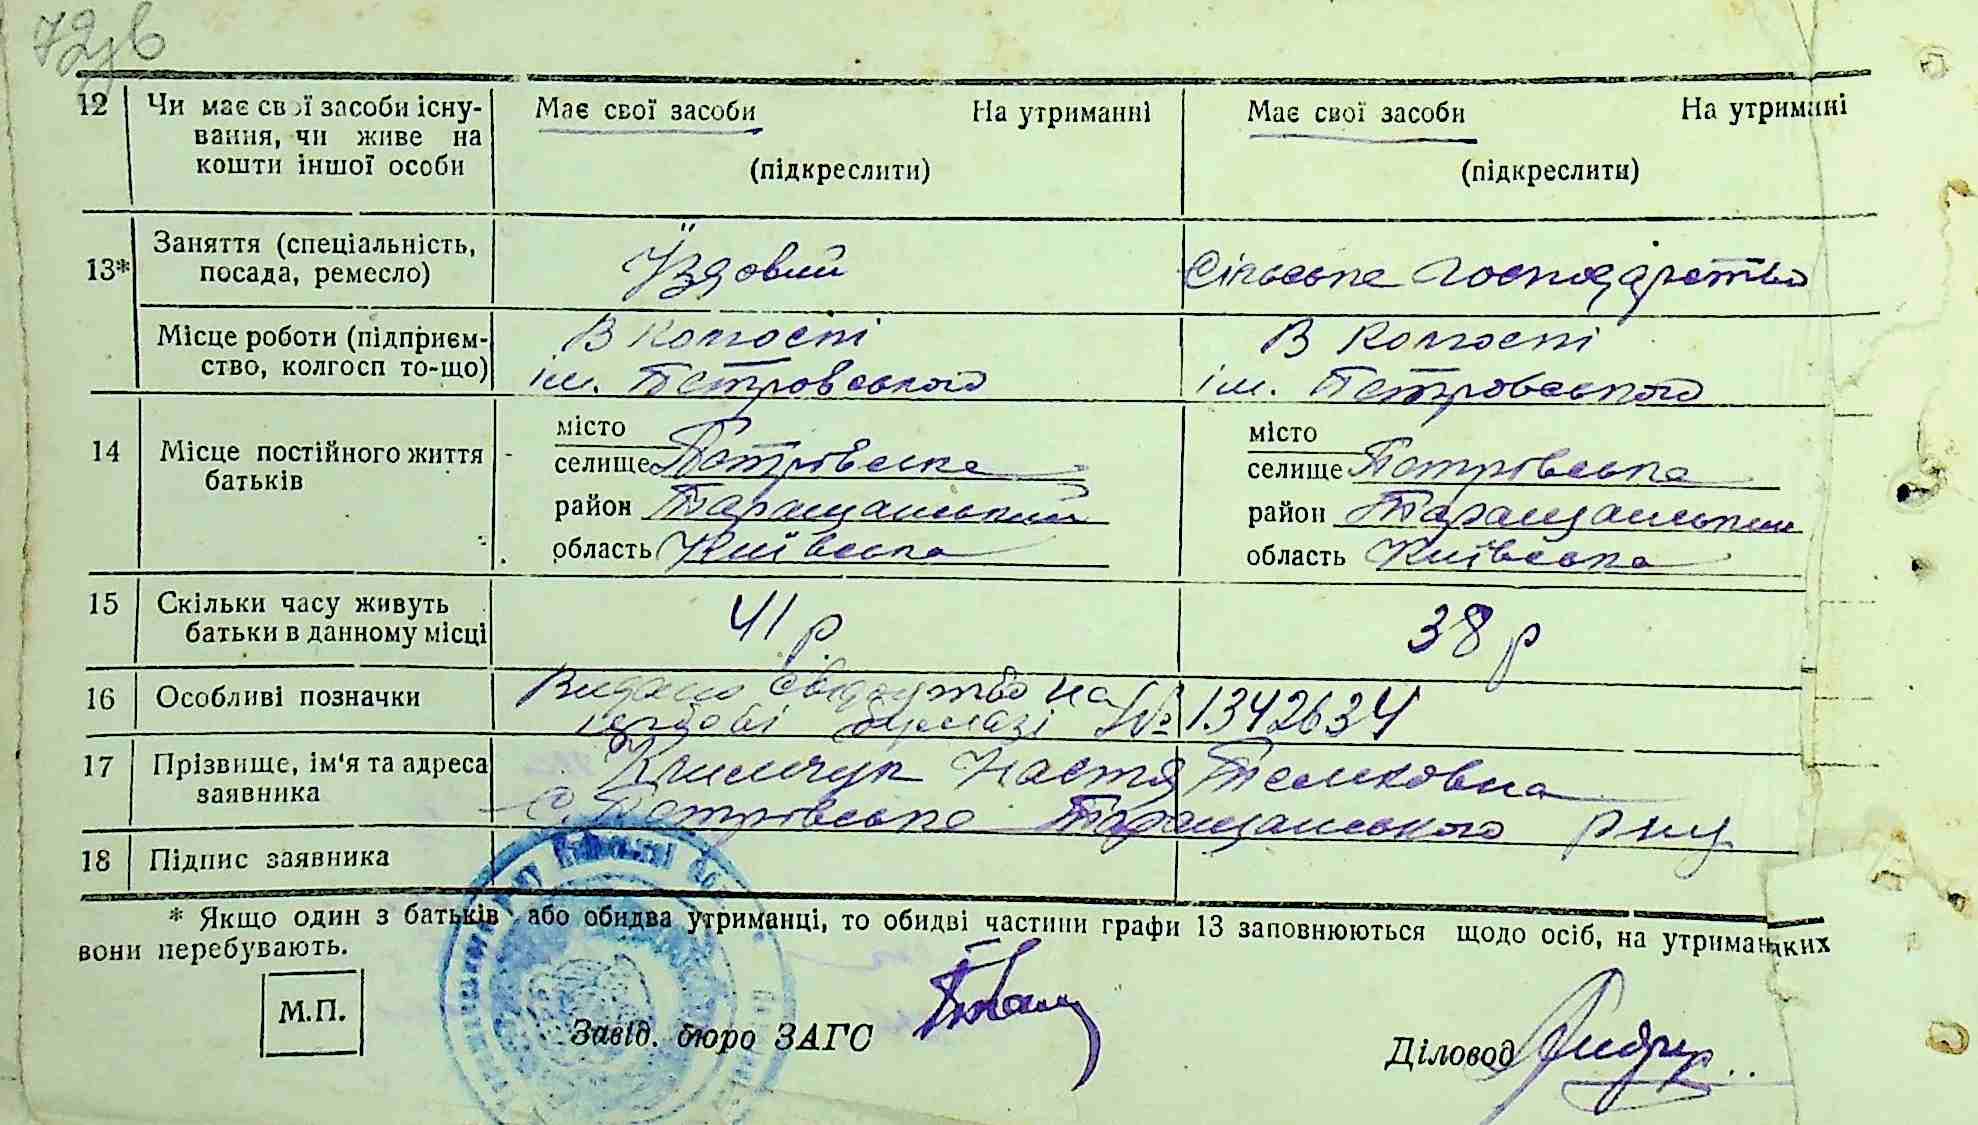 72зв
12 Чи має свої засоби існу-
вання, чи живе на
кошти іншої особи
Має свої засоби На утриманні
(підкреслити)
Має свої засоби На утримані
(підкреслити)
13* Заняття (спеціальність,
посада, ремесло)
Їздовий
Сільське господарство
Місце роботи (підприєм-
ство, колгосп то-що)
В колгоспі
ім. Петровського
В колгоспі
ім. Петровського
14 Місце постійного життя
батьків
місто
селище Петрівська
район Таращанський
область Київська
місто
селище Петрівська
район Таращанський
область Київська
15 Скільки часу живуть
батьки в данному місці
41 р
38 р
16 Особливі позначки
Видано свідоцтво на
гербові бумазі № 1342634
17 Прізвище, ім'я та адреса
заявника
Климчук Настя
С. Петрівська Таращанського р-ну
18 Підпис заявника
* Якщо один з батьків або обидва утриманці, то обидві частини графи 13 заповнюються щодо осіб, на утриман яких
вони перебувають.
М.П.
Завід. бюро ЗАГС
Діловод